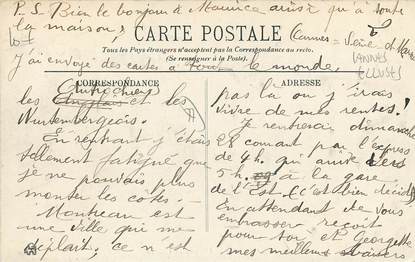 P.S. Bien le bonjour à Maurice ainsi qu'à toute
la maison,
CARTE POSTALE
Tous les Pays étrangers n'acceptent pas la Correspondance au recto.
(Se renseigner à la Poste).
J'ai envoyé des cartes à tout le monde.
CORRESPONDANCE
les Autrichiens et les
Wurtembergeois.
En rentrant j'étais
tellement fatigué que
je ne pouvais plus
monter les côtes.
Montreau est
une ville qui me
déplait; ce n'est
ADRESSE
pas là où j'irais
vivre de mes rentes!
Je rentrerai dimanche
28 courant par l'express
de 4h. qui arrive vers
5h. à la gare
de l'Est (C'est bien décidé)
En attendant de vous
embrasser reçoit
pour toi et Georgette
mes meilleurs baisers